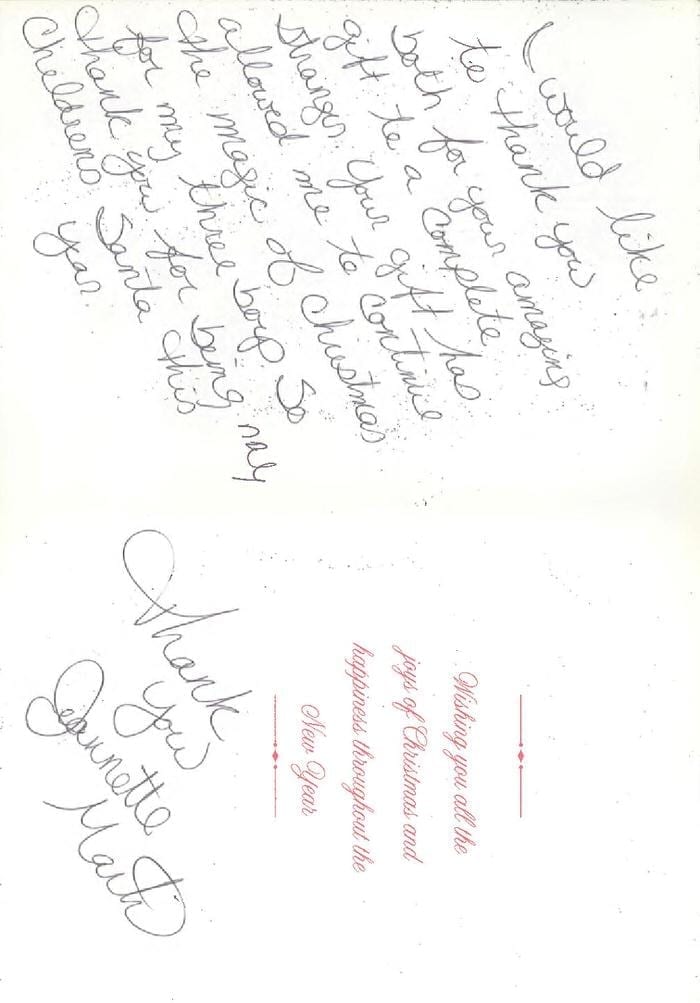 I would like
to thank you
both for your amazing
gift to a complete
stranger. Your gift has
allowed me to continue
the magic of Christmas
for my three boys. So
Thank you for being
Childrens Santa this
year.
Wishing you all the
joys of Christmas and
happiness throughout the
New Year
Thank
You
Jeannette
Martin